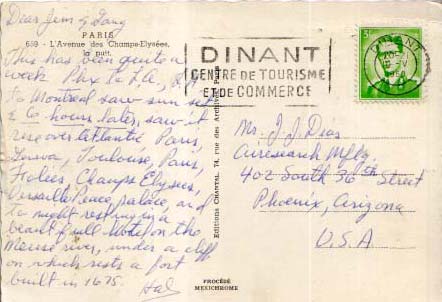 Dear Jem & Gang
PARIS
659 - L'Avenue des Champs-Elysées,
la nuit.
This has been quite a
week Phx to L.A.,
to Montreal saw sun set
& 6 hours later, saw it
rise over Atlantic Paris,
Geneva, Toulouse, Paris,
Folies, Champs Elysees,
Versaille Peace, palace, and
to night resting in a
beautiful Hotel on the
Meuse river, under a cliff
on which rests a fort
built in 1675.
Hal
DINANT
CENTRE DE TOURISME
ET DE COMMERCE
DINANT
Editions CHANTAL, 74, rue des Archives, Paris
Mr. J. J. Dias
Airesearch Mfg.
402 South 36th Street
Phoenix, Arizona
U.S.A.
PROCÉDÉ
MEXICHROME